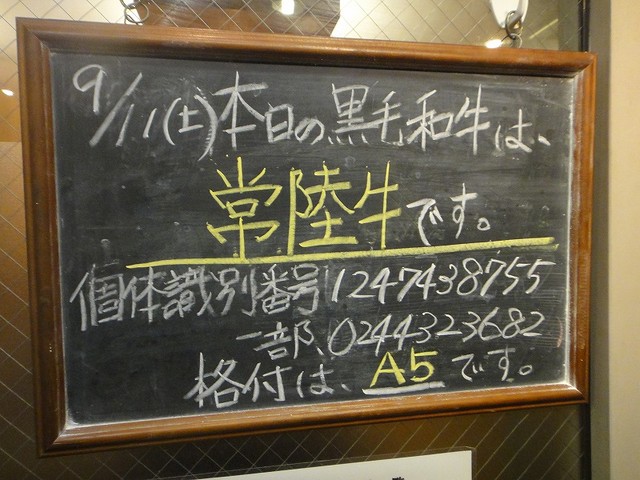 9/11(土)本日の黒毛和牛は、
常陸牛です。
個体識別番号1247438755
一部、0244323682
格付は、A5です。